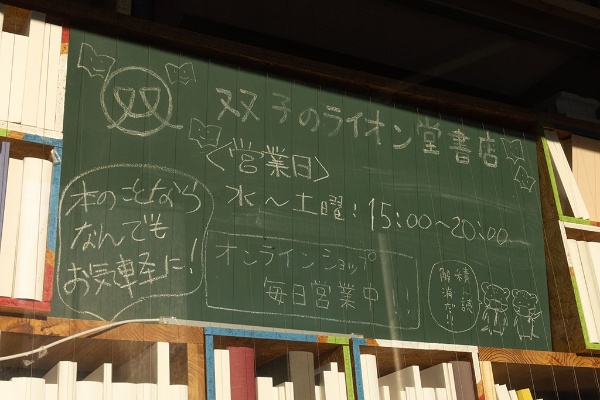 双
双子のライオン堂書店
〈営業日〉
水〜土曜:15:00〜20:00
本のことなら
なんでも
お気軽に!
オンラインショップ
毎日営業中!!
積読
解消だ!!